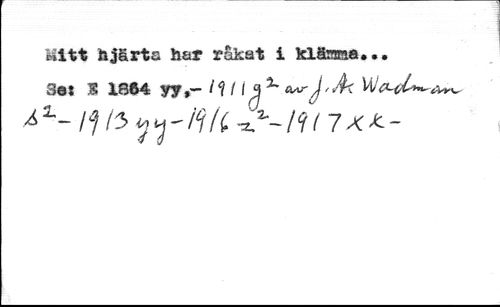 Mitt hjärta har råkat i klämma...
Se: E 1864 yy,- 1911 g² av J. A. Wadman
s² - 1913 yy - 1916 z² - 1917 xx -